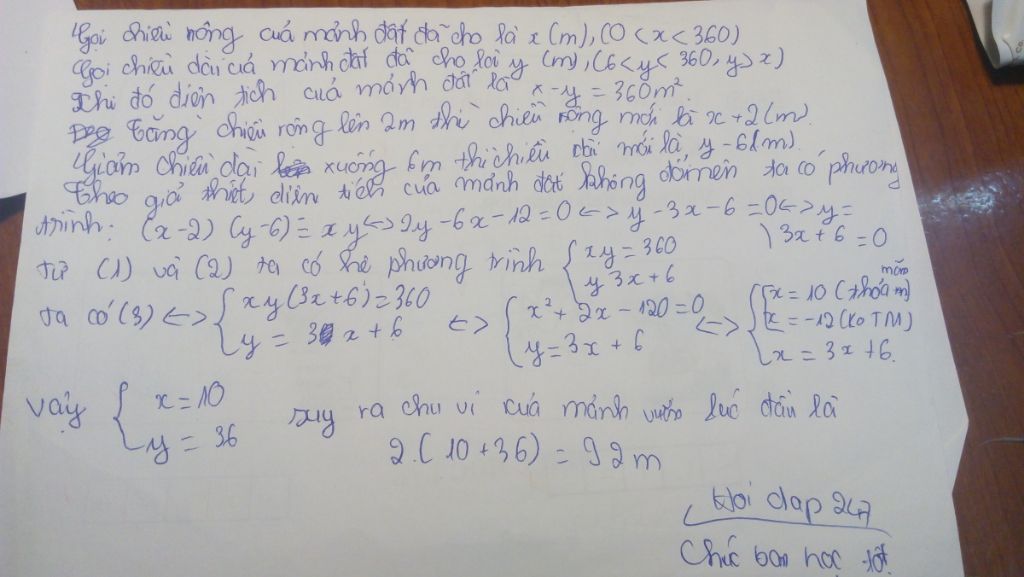 Gọi chiều rộng cuả mảnh đất đã cho là x (m), (0 < x < 360)
Gọi chiều dài cuả mảnh đất đã cho là y (m), (6 < y < 360, y > x)
Khi đó diện tích cuả mảnh đất là x - y = 360m².
Tăng chiều rộng lên 2m thì chiều rộng mới là x + 2 (m).
Giảm chiều dài xuống 6m thì chiều dài mới là y - 6 (m).
Theo giả thiết, diện tích của mảnh đất không đổi nên ta có phương
trình: (x - 2) (y - 6) = xy <-> 2y - 6x - 12 = 0 <-> y - 3x - 6 = 0 <-> y =
3x + 6 = 0
từ (1) và (2) ta có hê phương trình { xy = 360
y 3x + 6
ta có (3) <-> { xy (3x + 6) = 360 <-> { x² + 2x - 120 = 0 <-> { [ x = 10 (thỏa mãn)
y = 3 x + 6 y = 3x + 6 x = -12 (Ko TM)
x = 3x + 6.
vậy { x = 10 suy ra chu vi cuả mảnh vườn lúc đầu là
y = 36 2. (10 + 36) = 92 m
Hoi dap 247
Chúc bạn học tốt.